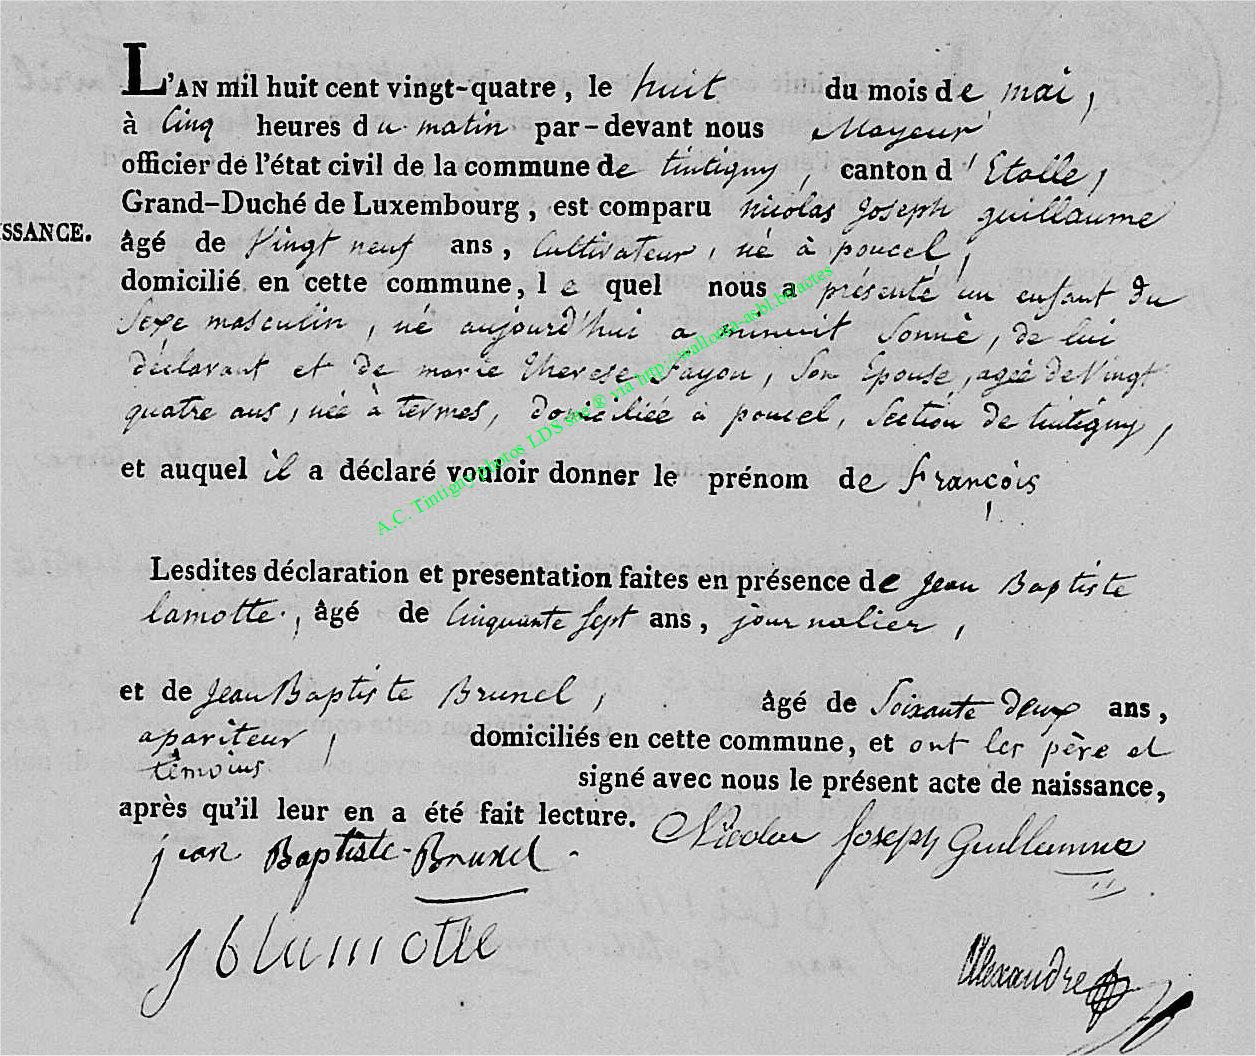 L'AN mil huit cent vingt-quatre, le huit du mois de mai,
à Cinq heures du matin par-devant nous Mayeur
officier de l'état civil de la commune de tintigny, canton d'Etalle,
Grand-Duché de Luxembourg, est comparu nicolas Joseph guillaume
ISSANCE.
âgé de Vingt neuf ans, Cultivateur, né à poncel,
domicilié en cette commune, le quel nous a présenté un enfant du
Sexe masculin, né aujourd'hui a minuit Sonné, de lui
déclarant et de marie Therese Fayon, Son Epouse, agée de Vingt
quatre ans, née à termes, domiciliée à poncel, Section de tintigny,
et auquel il a déclaré vouloir donner le prénom de François
A.C. Tintigny photos LDS site ® via http://wallonia-asbl.be/actes
Lesdites déclaration et presentation faites en présence de Jean Baptiste
lamotte, âgé de Cinquante Sept ans, journalier,
et de Jean Baptiste Brunel, âgé de Soixante deux ans,
apariteur, domiciliés en cette commune, et ont les père et
témoins signé avec nous le présent acte de naissance,
après qu'il leur en a été fait lecture.
Nicolas Joseph Guillaume
jean Baptiste Brunel
J b lamotte
Alexandre